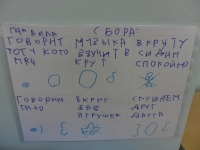 ПРАВИЛА СБОРА:
ГОВОРИТ МУЗЫКА В КРУГУ
ТОТ У КОГО ЗВУЧИТ В СИДИМ
МЯЧ КРУГ СПОКОЙНО
ГОВОРИМ ВКРУГ СЛУШАЕМ
ТИХО БЕЗ ДРУГ
ИГРУШЕК ДРУГА